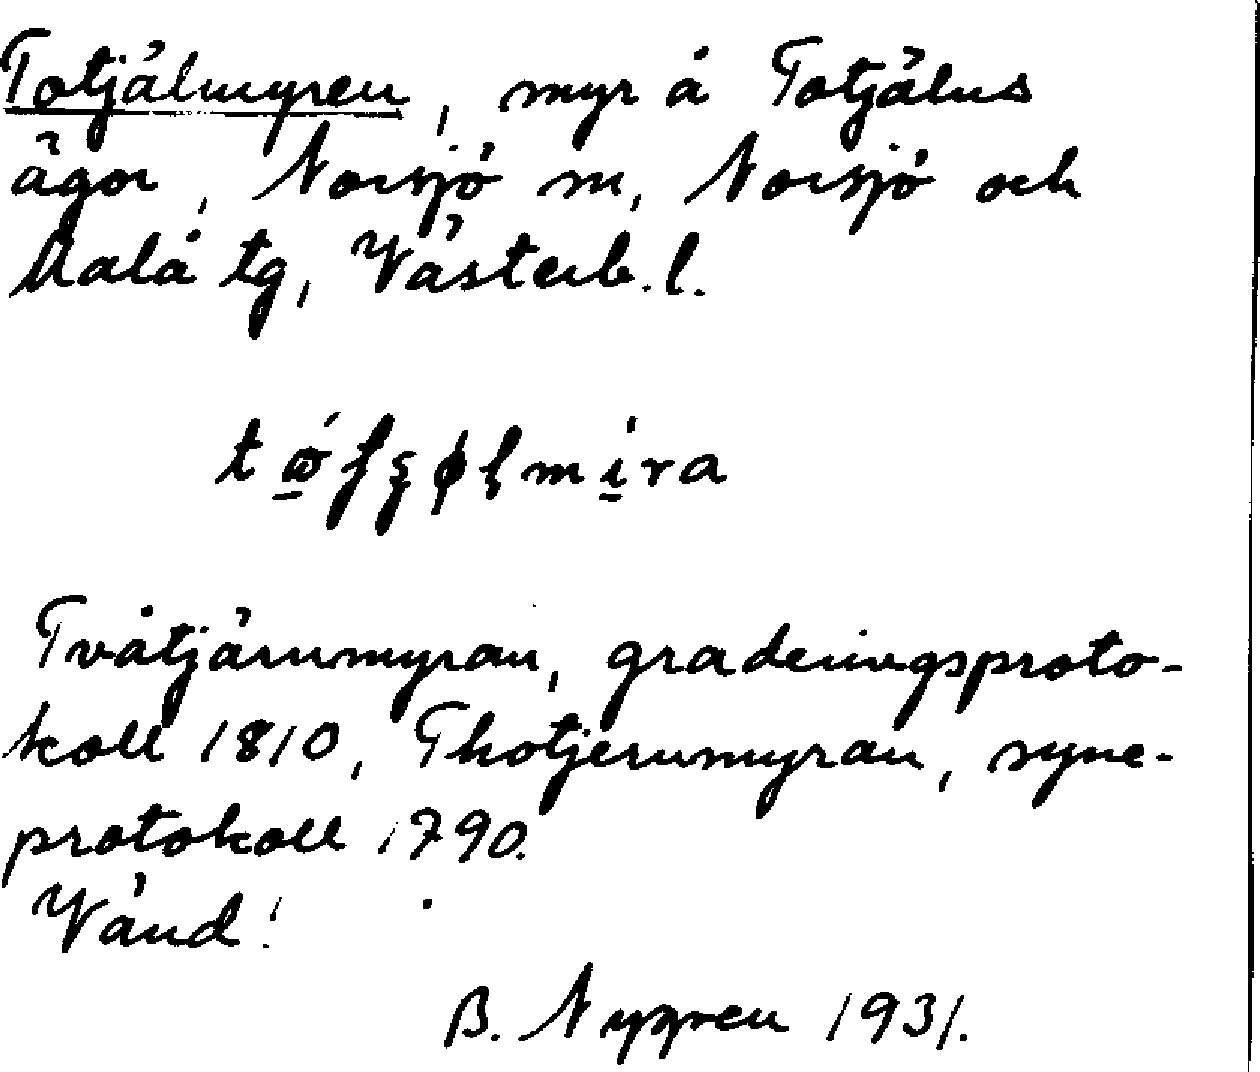 Totjälmyren, myr å Totjälns
ägor, Norsjö sn, Norsjö och
Malå tg, Västerb. l.
Tvåtjärnmyran, graderingsproto-
koll 1810, Thotjernmyran, syne-
protokoll 1790.
Vänd!
B. Nygren 1931.